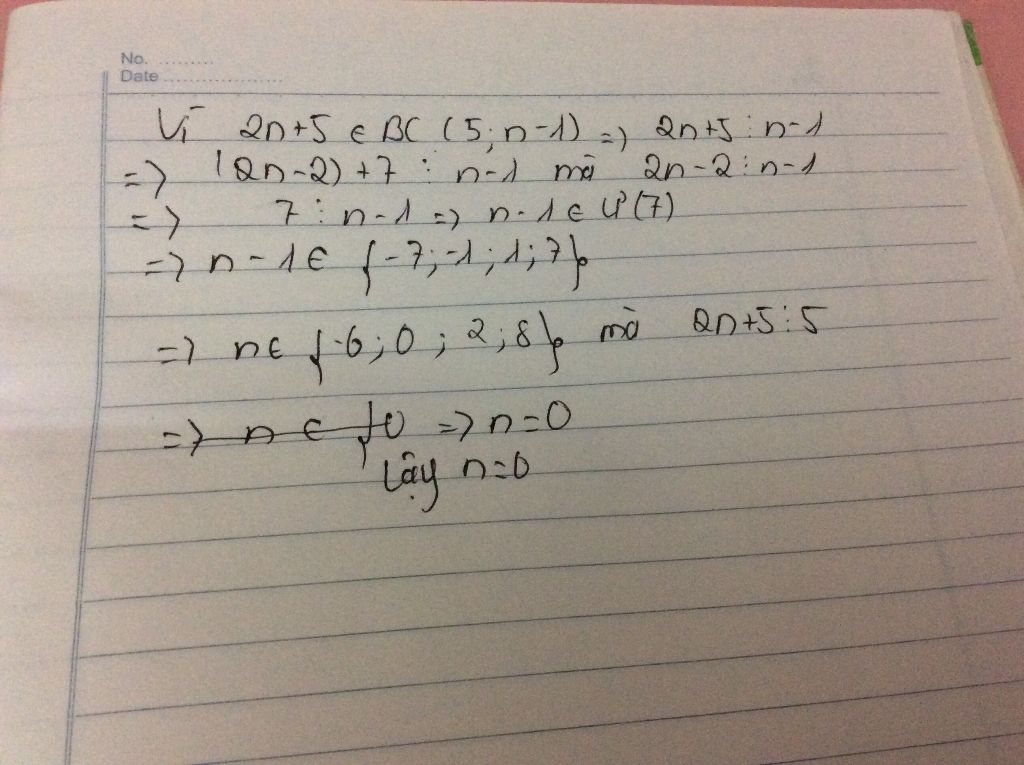 No. ..........
Date ....................
Vì 2n+5 ∈ BC (5; n-1) => 2n+5 ⋮ n-1
=> (2n-2) +7 ⋮ n-1 mà 2n-2 ⋮ n-1
=> 7 ⋮ n-1 => n-1 ∈ Ư(7)
=> n-1 ∈ {-7; -1; 1; 7}
=> n ∈ {-6; 0; 2; 8} mà 2n+5 ⋮ 5
=> n ∈ {0 => n=0
Vậy n=0